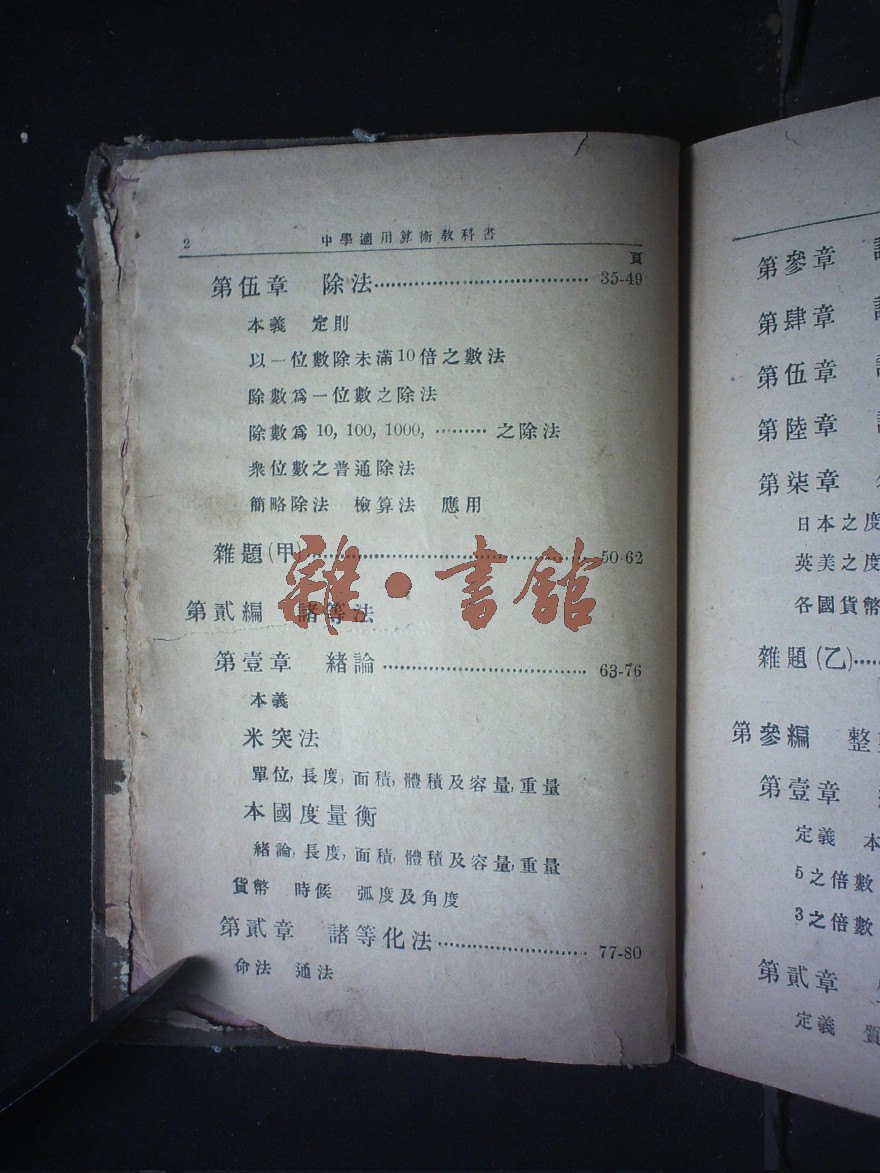 2 中學適用算術教科書
頁
第伍章 除法 ................................ 35-49
本義 定則
以一位數除未滿10倍之數法
除數爲一位數之除法
除數爲 10, 100, 1000, ········· 之除法
衆位數之普通除法
簡略除法 檢算法 應用
雜題(甲) ................................ 50-62
雜·書館
第貳編 諸等法
第壹章 緒論 ................................ 63-76
本義
米突法
單位,長度,面積,體積及容量,重量
本國度量衡
緒論,長度,面積,體積及容量,重量
貨幣 時候 弧度及角度
第貳章 諸等化法 ........................ 77-80
命法 通法
第參章
第肆章
第伍章
第陸章
第柒章
日本之度
英美之度
各國貨幣
雜題(乙)....
第參編 整
第壹章
定義 本
5之倍數
3之倍數
第貳章
定義 質